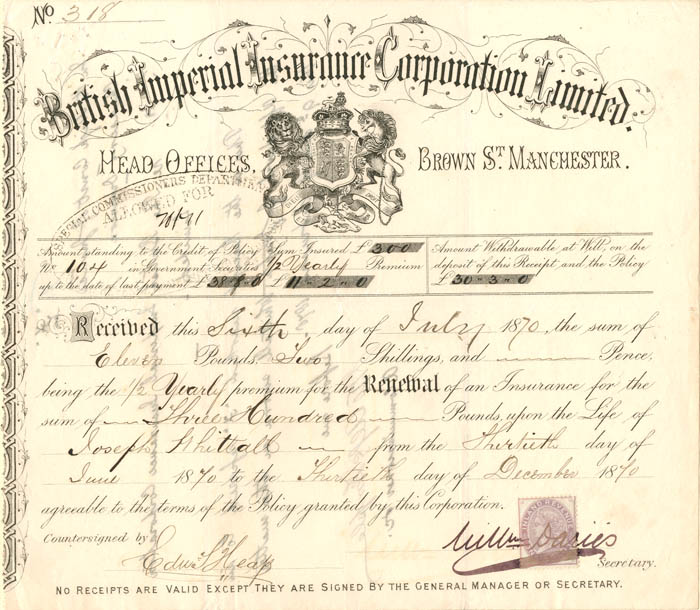 No 318
British Imperial Insurance Corporation Limited.
Head Offices, Brown St. Manchester.
SPECIAL COMMISSIONERS DEPARTMENT
ALLOWED FOR
70/71
Amount standing to the Credit of Policy
No. 104 in Government Securities
up to the date of last payment £38-8-0
Sum Insured £300
1/2 Yearly Premium
£11-2-0
Amount Withdrawable, at Will, on the
deposit of this Receipt and the Policy
£30-3-0
Received this Sixth day of July 1870, the sum of
Eleven Pounds, Two Shillings, and Pence,
being the 1/2 Yearly premium for the Renewal of an Insurance for the
sum of Three Hundred Pounds, upon the Life of
Joseph Whittall from the Thirtieth day of
June 1870 to the Thirtieth day of December 1870
agreeable to the terms of the Policy granted by this Corporation.
INLAND REVENUE
Countersigned by Edwd Heap
Willm Davies
Secretary.
No Receipts are Valid Except They are Signed by the General Manager or Secretary.